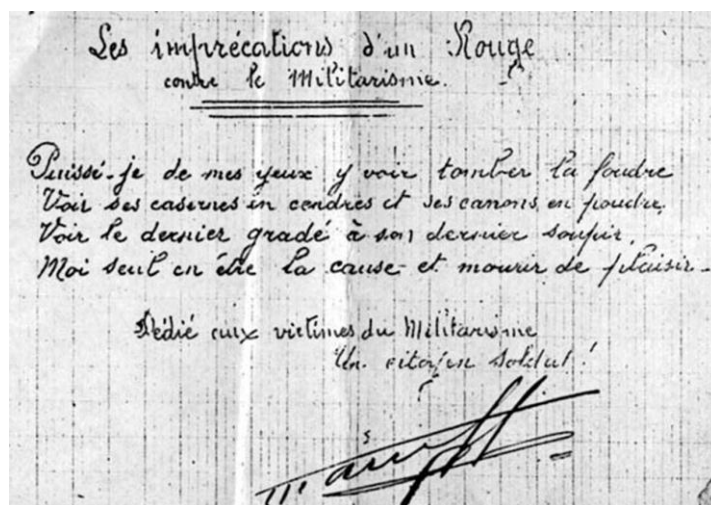 Les imprécations d'un Rouge
contre le Militarisme.
Puissé-je de mes yeux y voir tomber la foudre
Voir ses casernes in cendres et ses canons en poudre,
Voir le dernier gradé à son dernier soupir,
Moi seul en être la cause et mourir de plaisir -
Dédié aux victimes du Militarisme
Un citoyen soldat !